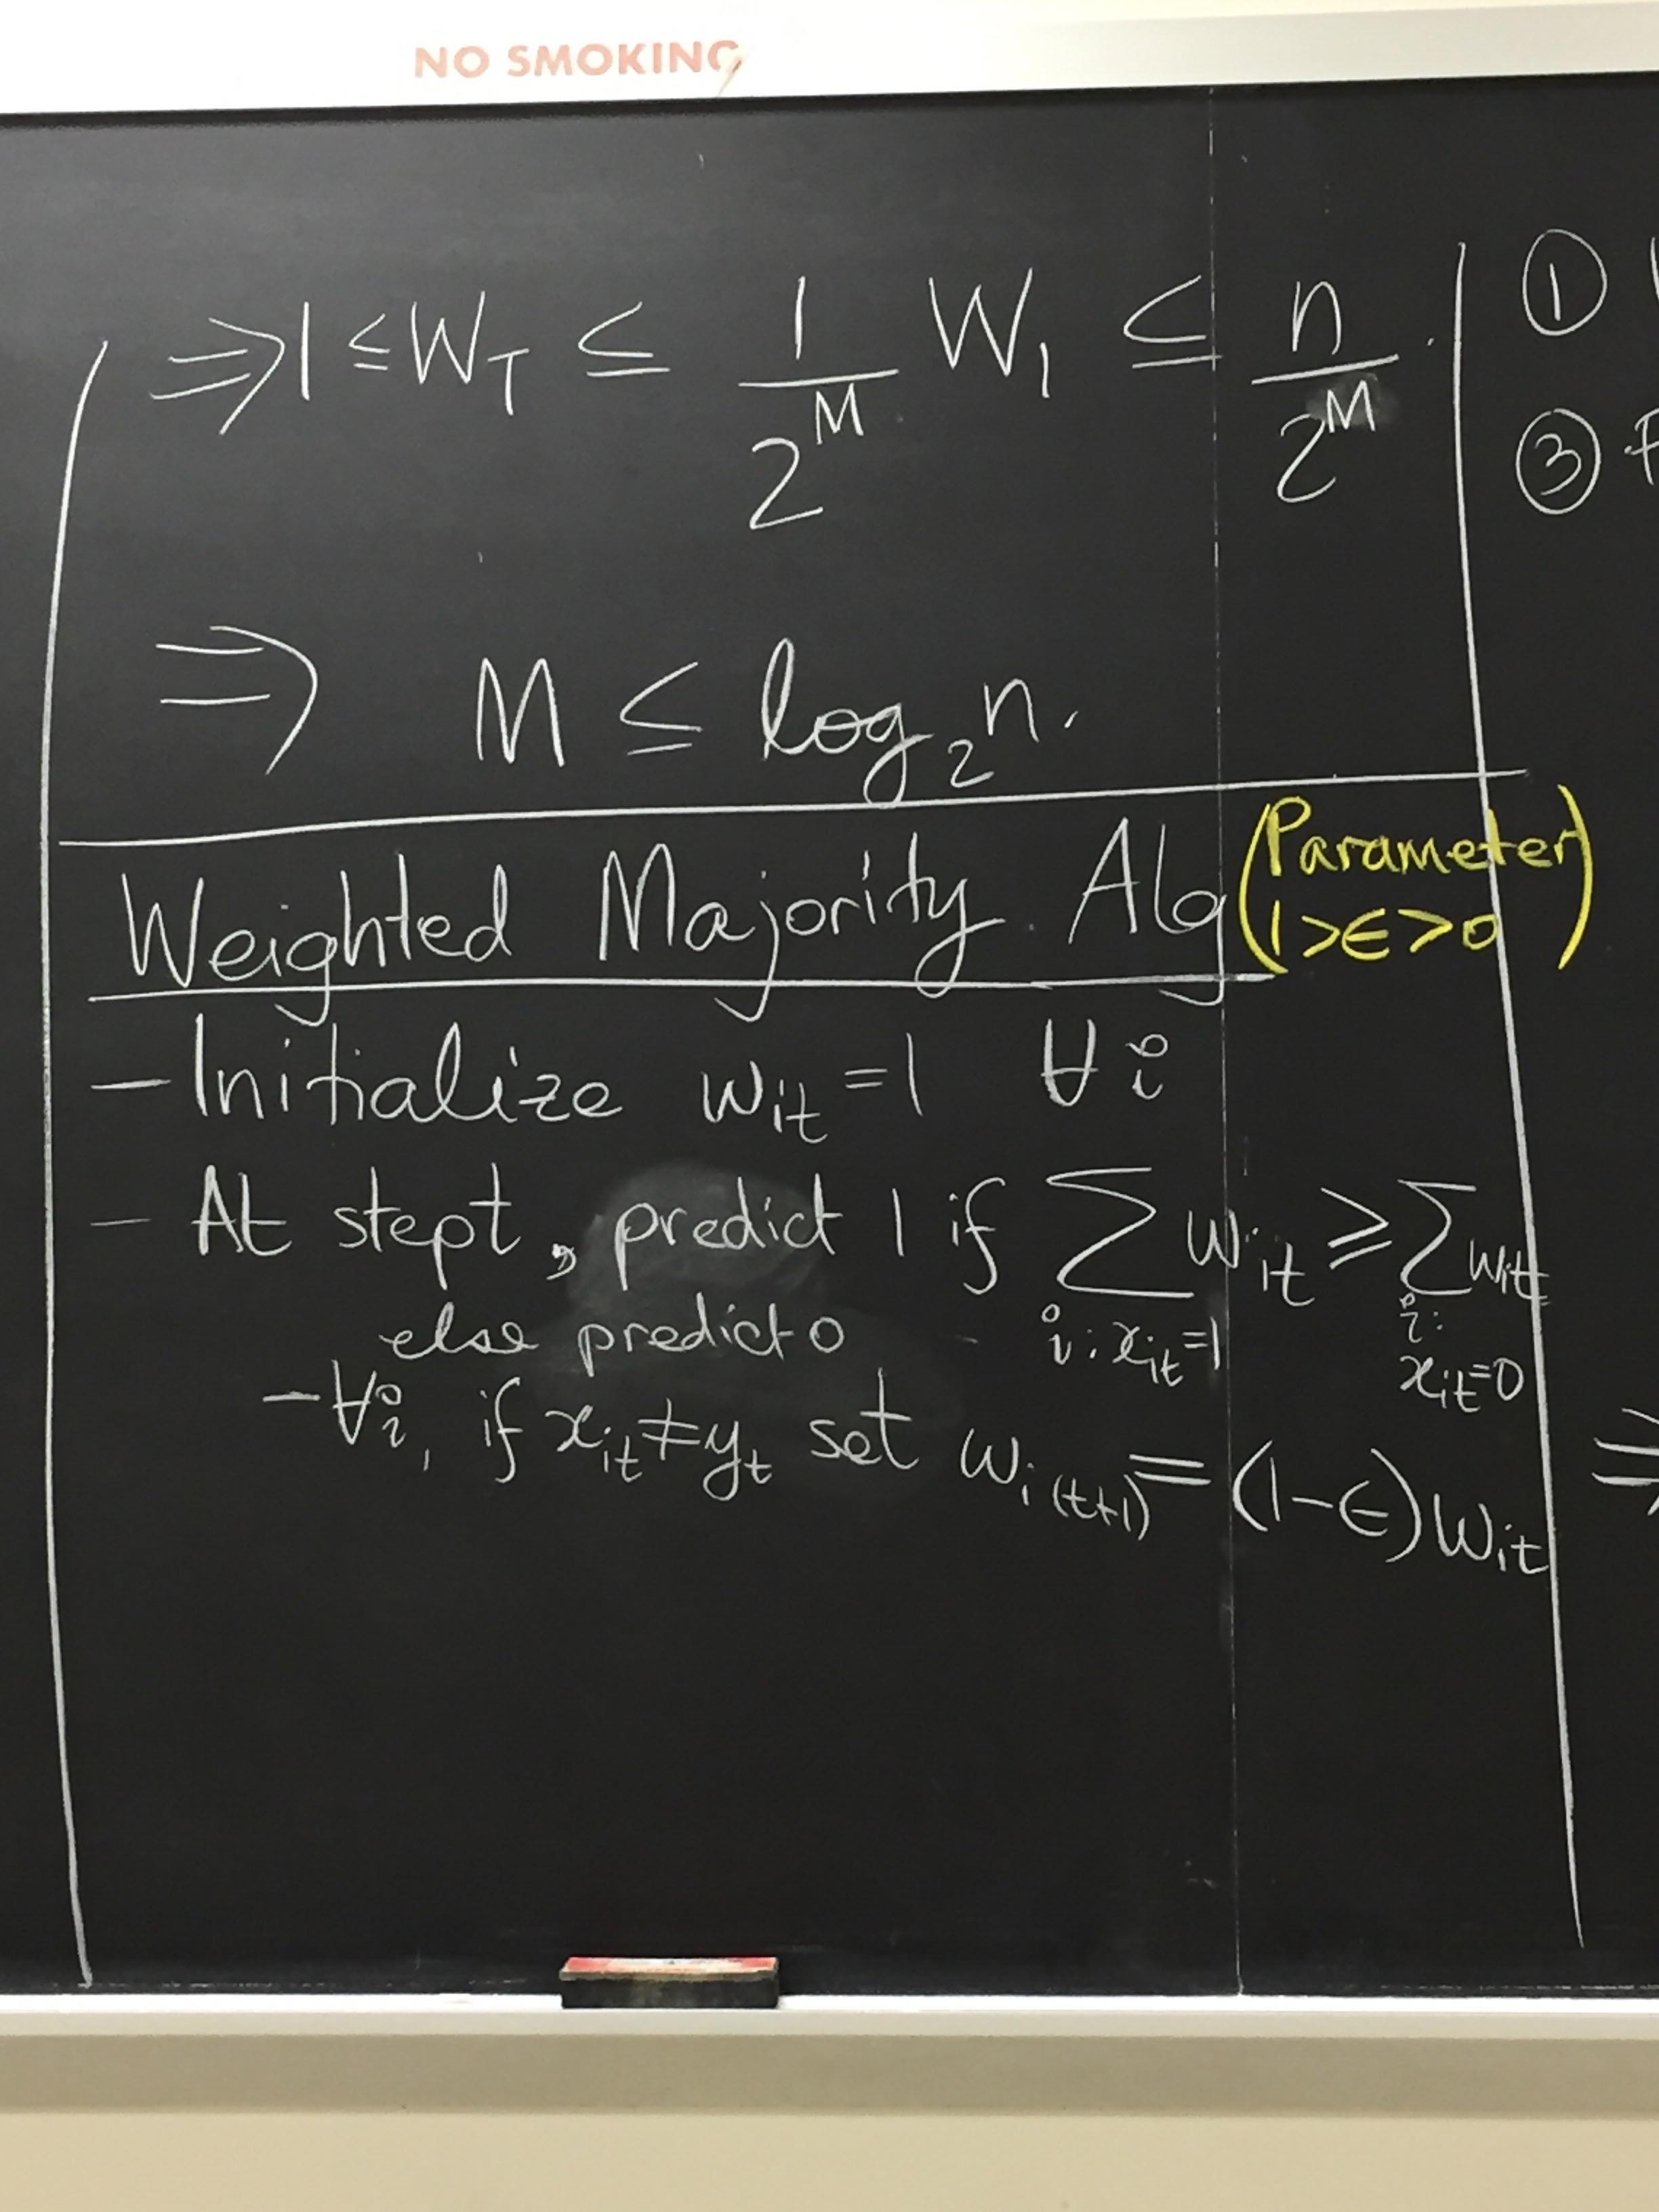 NO SMOKING
⇒ 1 ≤ W_T ≤ 1/2^M W_1 ≤ n/2^M .
①
③
⇒ M ≤ log_2 n.
Weighted Majority Alg (Parameter 1>ϵ>0)
– Initialize w_it = 1 ∀i
– At step t, predict 1 if ∑_{i: x_it=1} w_it ≥ ∑_{i: x_it=0} w_it
else predict 0
– ∀i, if x_it ≠ y_t set w_i(t+1) = (1-ϵ) w_it
⇒